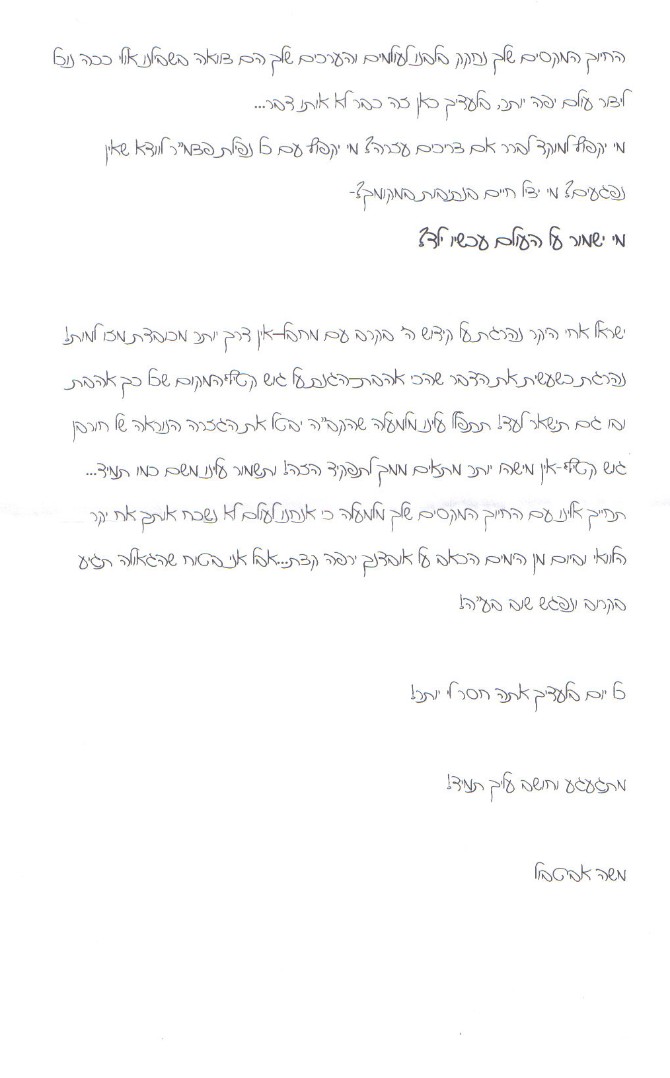 החיוך המקסים שלך נחקק בלבנו לעולמים והערכים שלך הם צוואה בשבילנו אולי ככה נוכל
ליצור עולם יפה יותר, בלעדיך כאן זה כבר לא אותו דבר...
מי יקפוץ למוקד לברר אם צריכים עזרה? מי יקפוץ עם כל נפילת פצמ"ר לוודא שאין
נפגעים? מי יציל חיים בנתיבות במקומך?-
מי ישמור על העולם עכשיו ילד?
ישראל אחי היקר נהרגת על קידוש ה' בקרב עם מחבל-אין דרך יותר מכובדת מזו למות!
נהרגת כשעשית את הדבר שהכי אהבת-הגנת על גוש קטיף-המקום שכל כך אהבת
ובו גם תישאר לעד! תתפלל עלינו מלמעלה שהקב"ה יבטל את הגזרה הנוראה של חורבן
גוש קטיף-אין מישהו יותר מתאים ממך לתפקיד הזה! ותשמור עלינו משם כמו תמיד...
תחייך אלינו עם החיוך המקסים שלך מלמעלה כי אנחנו לעולם לא נשכח אותך אח יקר
הלוואי וביום מן הימים הכאב על אובדנך ירפה קצת...אבל אני בטוח שהגאולה תגיע
בקרוב וניפגש שוב בע"ה!
כל יום בלעדיך אתה חסר לי יותר!
מתגעגע וחושב עליך תמיד!
משה אביטבול